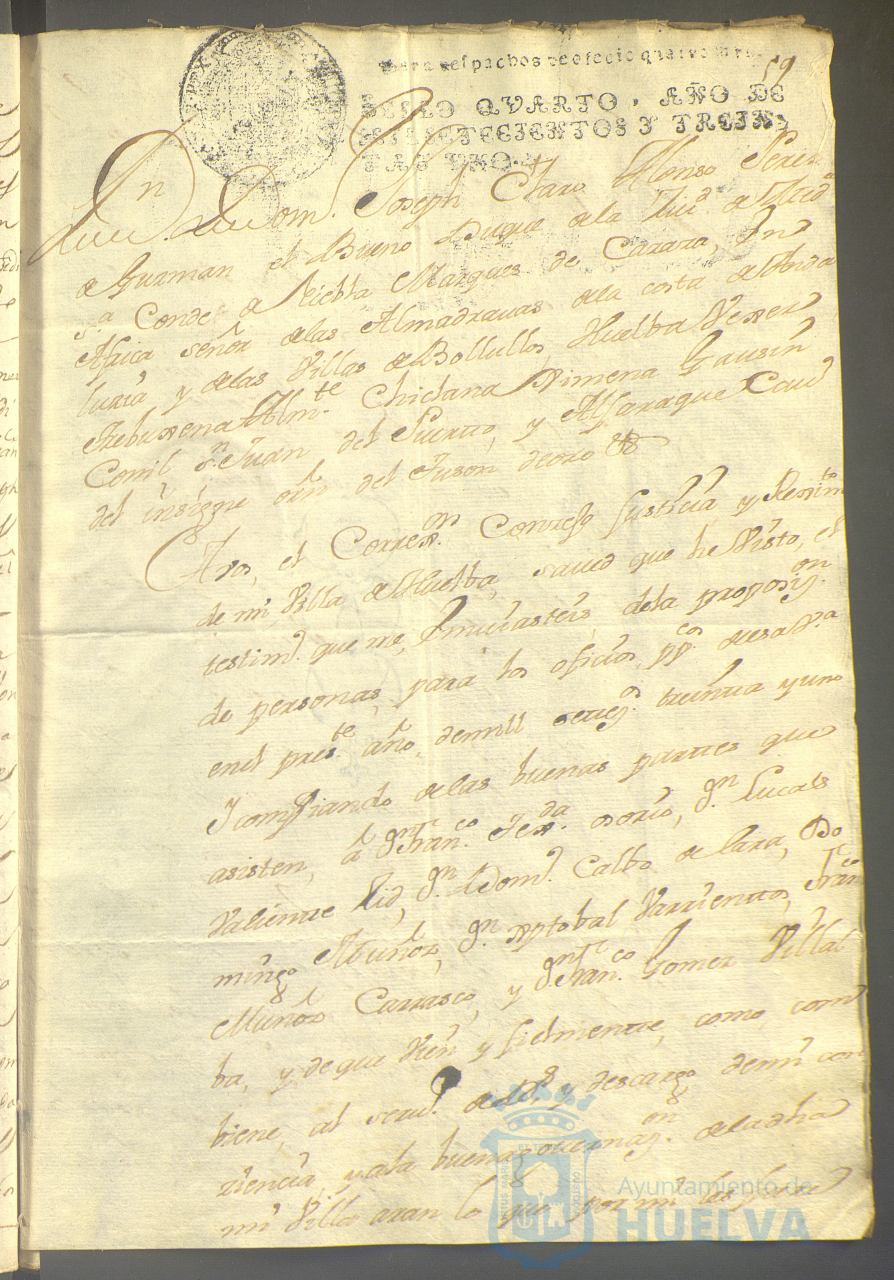 para despachos de oficio quatro mrs.
59
SELLO QVARTO, AÑO DE
MIL SETECIENTOS Y TREIN
TA Y VNO.
Dn Dom. Joseph Claros Alonso Perez
de Guzman el Bueno Duque de la Ciud. de Medna
Sa. Conde de Niebla Marques de Cazaza, In
Africa señor de las Almadravas de la costa de Anda
luzia y de las Villas de Bollullos, Huelba Vexer
Trebuxena Alm.te Chiclana Ximena Gausin
Conil Sn. Juan del Puerto, y Alfaraque Cavo
del insigne orn del Tuson de oro &
A vos, el Correxon. Conzejo Justicia y Reximto
de mi Villa de Huelba, saued que he Visto, el
testimo. que me, Imuiasteis, de la proposizon.
de personas, para los oficios ppcos. de esa Va
en el preste. año, de mill setezos. treinta y uno
Y comfiando de las buenas partes que
asisten, a Dn Franco. Texda. osorio, Dn. Lucas
Valiente Cid, Dn. Domo. Calbo de Lara, Do
mingo Muñoz, Dn. Xptobal Varrientos, Franco
Muñoz Carrasco, y Dn Franco. Gomez Villal
ba, y de que Vien y fielmente, como, com
biene, al seruo. de Ds. y descargo de mi con
ziencia, y a la buena governazon. de la dha
mi Villa aran lo que por mi les fuere
Ayuntamiento de
HUELVA